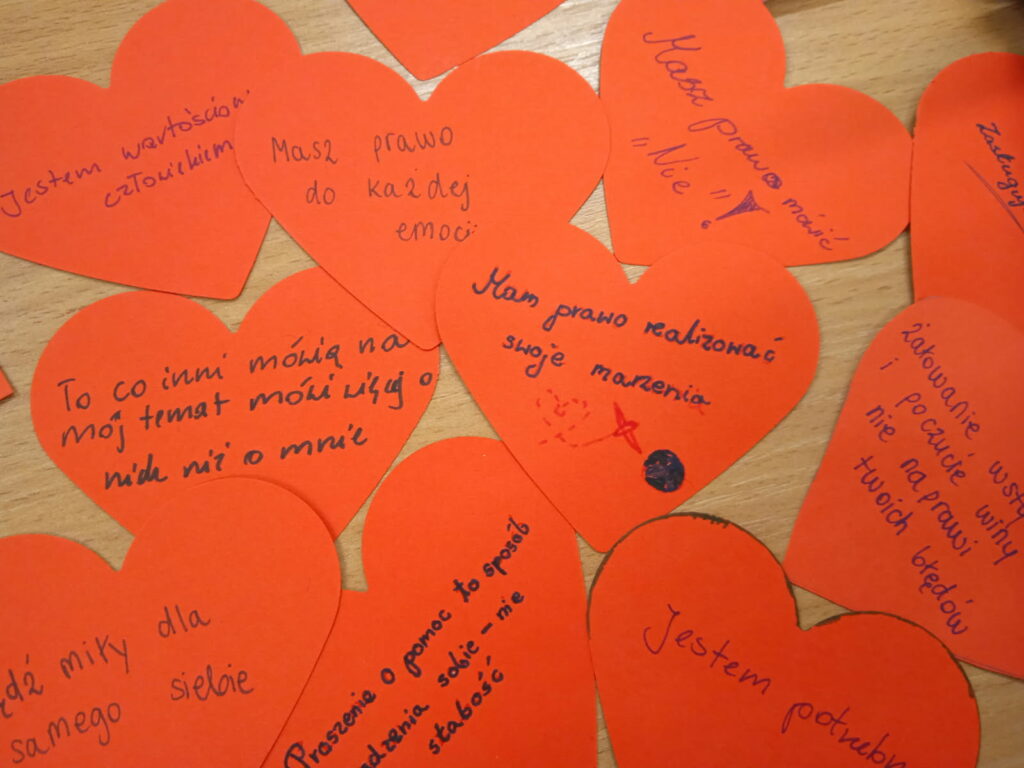 Jestem wartościow
człowiekiem
Masz prawo
do każdej
emocji
Masz prawo mówić
"Nie"!
Zasługuj
To co inni mówią na
mój temat mówi więcej o
nich niż o mnie
Mam prawo realizować
swoje marzenia
żałowanie wsty
i poczucie winy
nie naprawi
twoich błędów
ądź miły dla
samego siebie
Proszenie o pomoc to sposób
adzenia sobie - nie
słabość
Jestem potrzebn